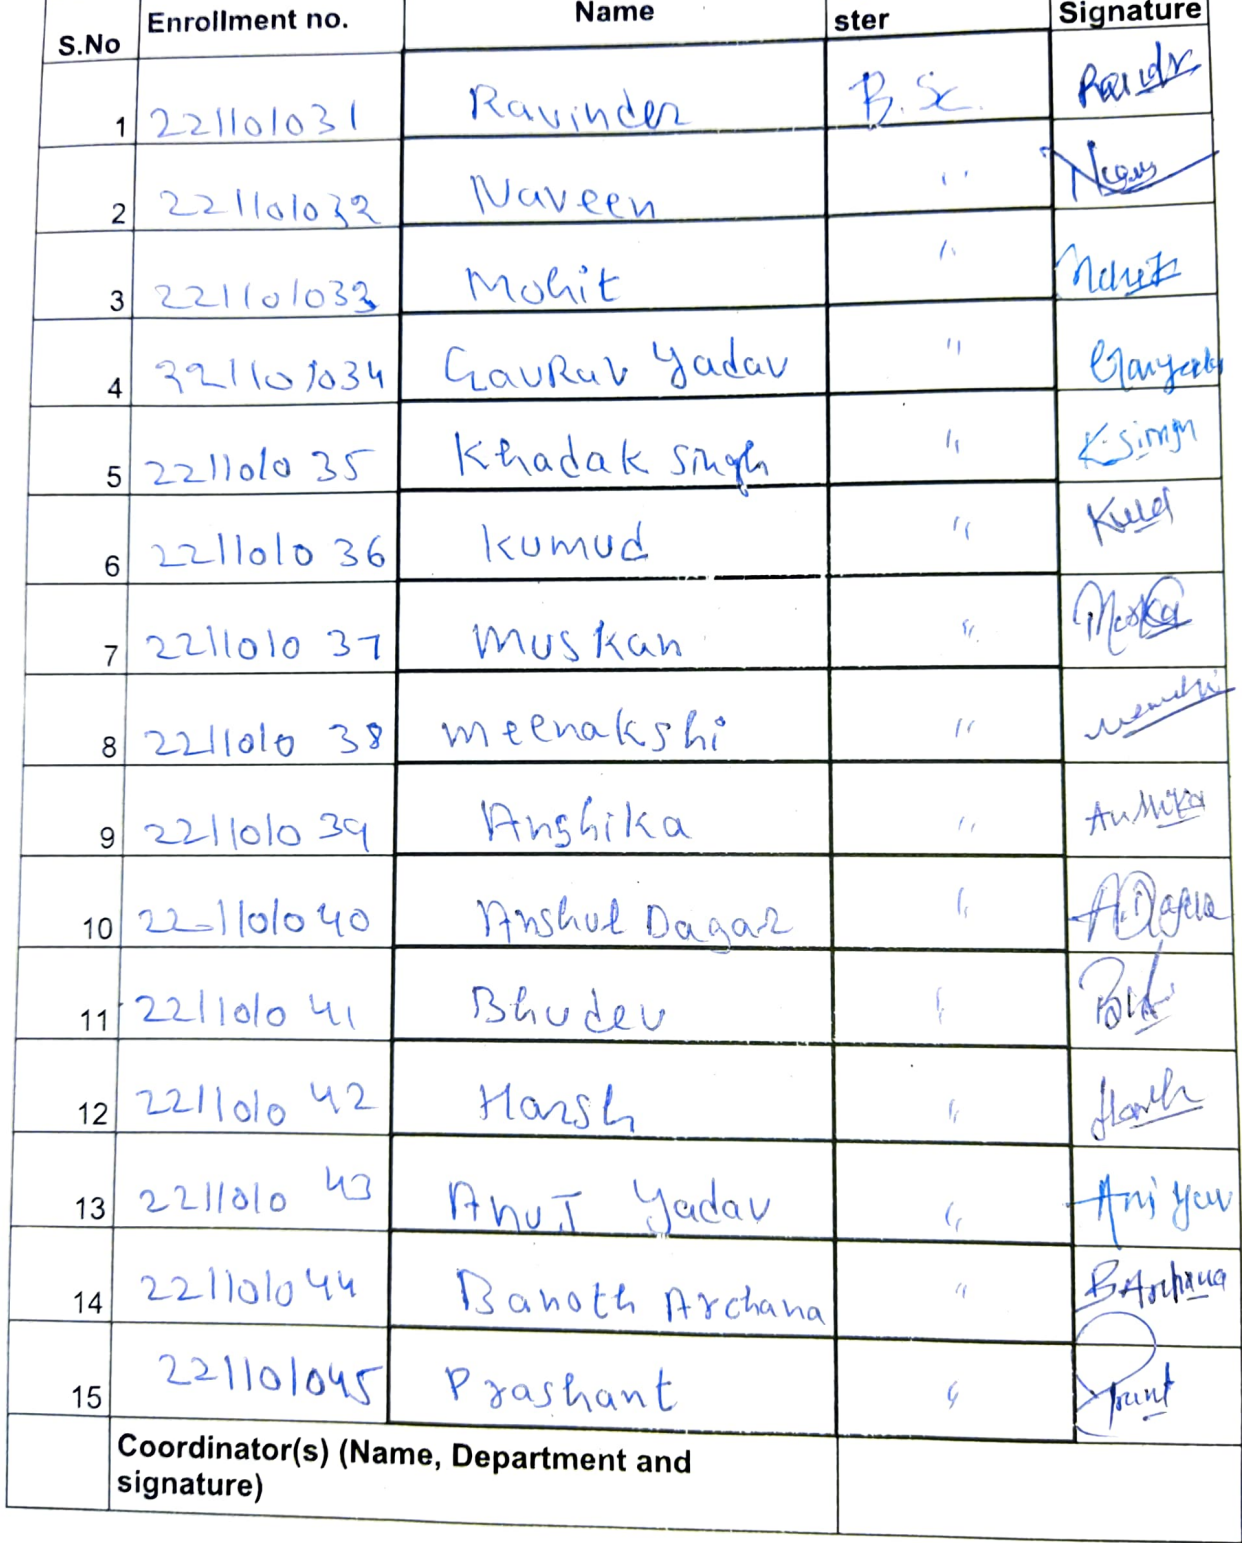 S.No Enrollment no. Name ster Signature
1 221101031 Ravinder B.Sc.
2 221101032 Naveen "
3 221101033 Mohit " Mohit
4 221101034 Gaurav Yadav "
5 221101035 Khadak Singh " K.Singh
6 221101036 Kumud "
7 221101037 Muskan "
8 221101038 meenakshi "
9 221101039 Anshika " Anshika
10 221101040 Anshul Dagar "
11 221101041 Bhudev "
12 221101042 Harsh " Harsh
13 221101043 Anuj Yadav "
14 221101044 Banoth Archana " B Archana
15 221101045 Prashant "
Coordinator(s) (Name, Department and
signature)